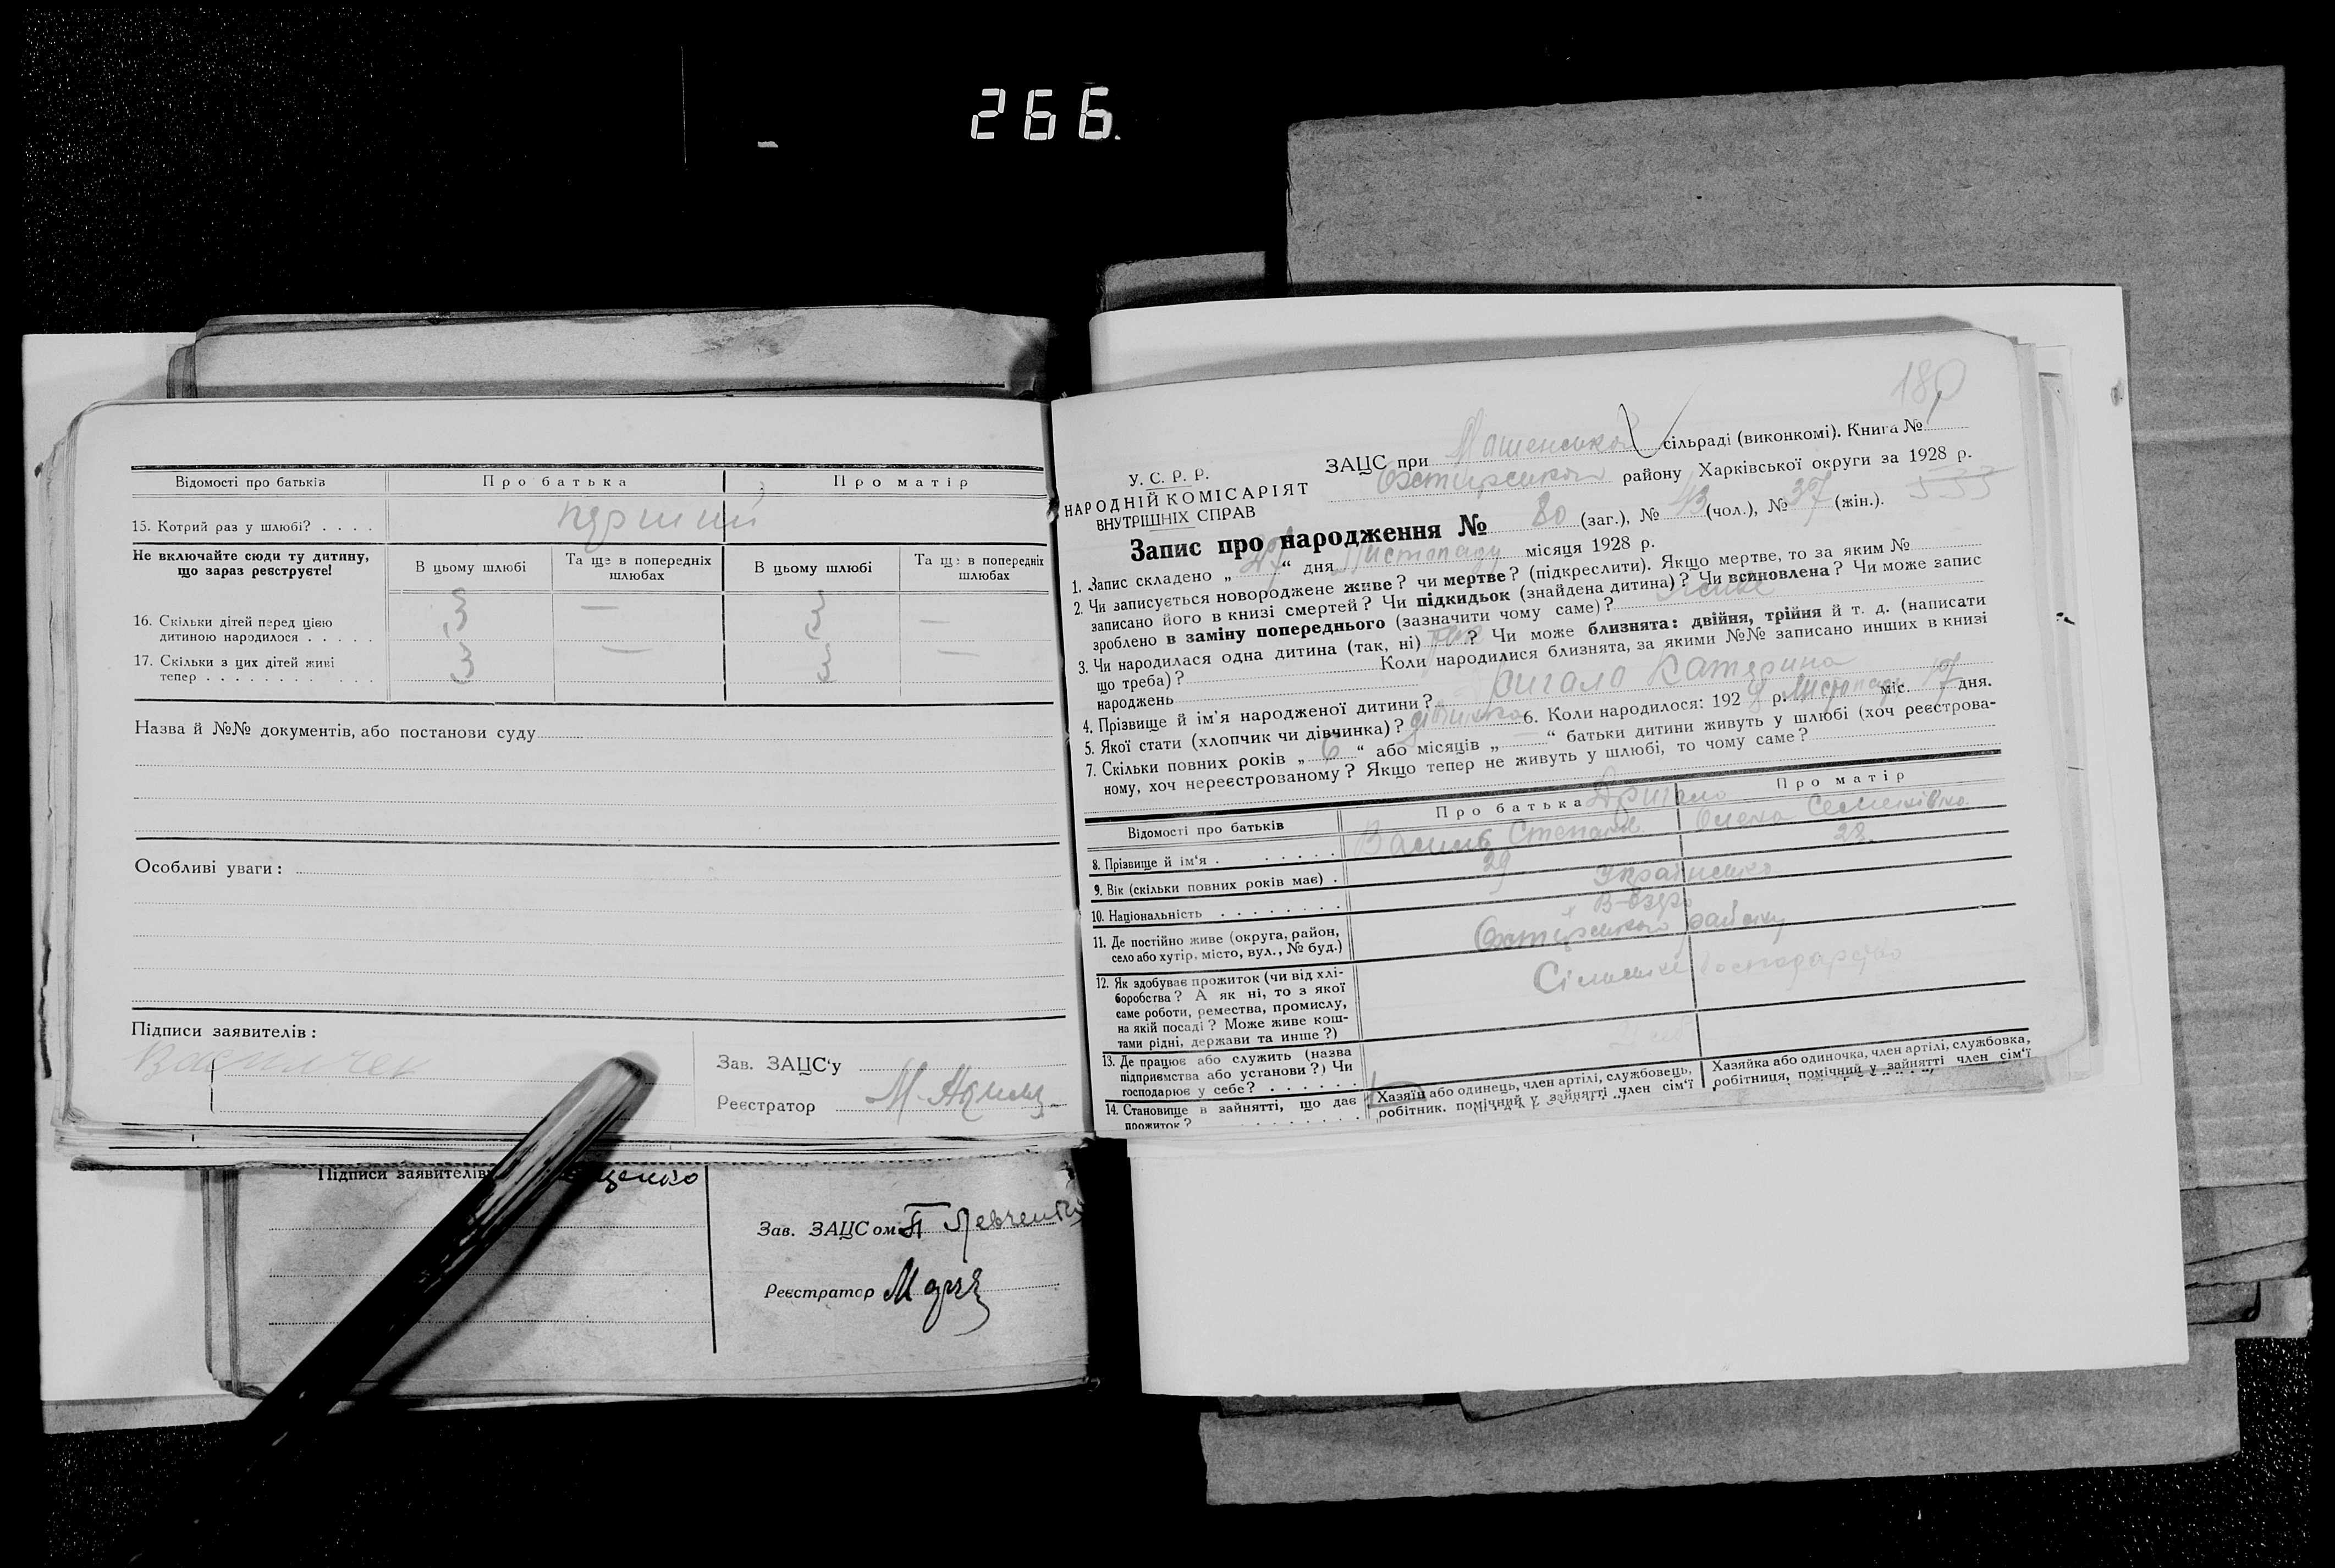 266.
Відомості про батьків
Про батька
Про матір
15. Котрий раз у шлюбі? . . . .
перший
Не включайте сюди ту дитину, що зараз реєструєте!
В цьому шлюбі
Та ще в попередніх шлюбах
В цьому шлюбі
Та ще в попередніх шлюбах
16. Скільки дітей перед цією
дитиною народилося . . . . .
3 — 3 —
17. Скільки з цих дітей живі
тепер . . . . . . . . . . .
3 — 3 —
Назва й №№ документів, або постанови суду
Особливі уваги:
Підписи заявителів:
Зав. ЗАЦС'у
Реєстратор
Підписи заявителів
Зав. ЗАЦСом П Левченко
Реєстратор
180
У. С. Р. Р.
НАРОДНІЙ КОМІСАРІЯТ
ВНУТРІШНІХ СПРАВ
ЗАЦС при сільраді (виконкомі). Книга № 1
Охтирського району Харківської округи за 1928 р.
Запис про народження № 80 (заг.), № 43 (чол.), № 37 (жін.). 533
1. Запис складено „ 27 “ дня Листопаду місяця 1928 р.
2. Чи записується новороджене живе? чи мертве? (підкреслити). Якщо мертве, то за яким №
записано його в книзі смертей? Чи підкидьок (знайдена дитина)? Чи всиновлена? Чи може запис
зроблено в заміну попереднього (зазначити чому саме)? живе
3. Чи народилася одна дитина (так, ні) так ? Чи може близнята: двійня, трійня й т. д. (написати
що треба)? Коли народилися близнята, за якими №№ записано инших в книзі
народжень
4. Прізвище й ім'я народженої дитини? Катерина
5. Якої стати (хлопчик чи дівчинка)? дівчинка 6. Коли народилося: 192 8 р. Листопаду міс. 17 дня.
7. Скільки повних років „ 6 “ або місяців „ — “ батьки дитини живуть у шлюбі (хоч реєстрова-
ному, хоч нереєстрованому? Якщо тепер не живуть у шлюбі, то чому саме?
Відомості про батьків
Про батька
Про матір
8. Прізвище й ім'я . . . . . .
Василь Степанов
Олена Семенівна
9. Вік (скільки повних років має) .
29
28
10. Національність . . . . . . . .
Українська
11. Де постійно живе (округа, район,
село або хутір, місто, вул., № буд.)
х В-Озеро
Охтирського району
12. Як здобуває прожиток (чи від хлі-
боробства? А як ні, то з якої
саме роботи, ремества, промислу,
на якій посаді? Може живе кош-
тами рідні, держави та инше?)
Сільське господарство
13. Де працює або служить (назва
підприємства або установи?) Чи
господарює у себе? . . . . . .
14. Становище в зайнятті, що дає
прожиток? . . . . . . . . .
Хазяїн або одинець, член артілі, службовець,
робітник, помічний у зайнятті член сім'ї
Хазяйка або одиночка, член артілі, службовка,
робітниця, помічний у зайнятті член сім'ї